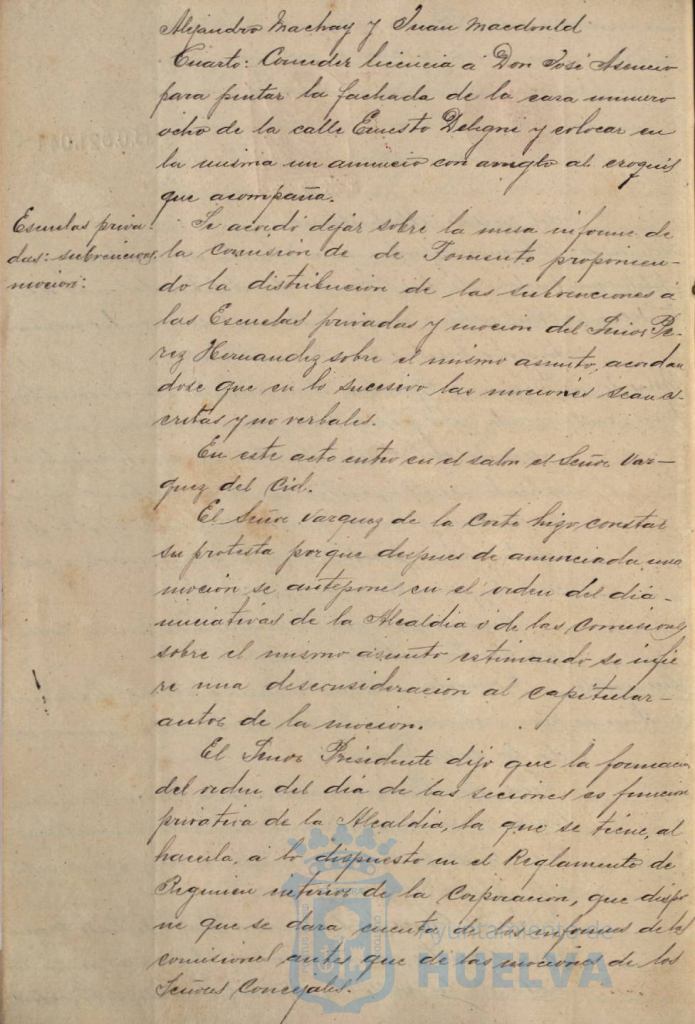 Alejandro Machay y Juan Macdonld
Cuarto: Conceder licencia á Don José Asencio
para pintar la fachada de la casa número
ocho de la calle Ernesto Deligni y colocar en
la misma un anuncio con arreglo al croquis
que acompaña.
Escuelas priva
das: subvenciones
mocion:
Se acordó dejar sobre la mesa informe de
la comisión de de Fomento proponien-
do la distribución de las subvenciones á
las Escuelas privadas y mocion del Señor Pe-
rez Hernandez sobre el mismo asunto, acordan
dose que en lo sucesivo las mociones sean es-
critas y no verbales.
En este acto entro en el salon el Señor Vaz-
quez del Cid.
El Señor Vazquez de la Corte hizo constar
su protesta porque despues de anunciada una
moción se antepones en el orden del dia-
iniciativas de la Alcaldia ó de las Comisiones
sobre el mismo asunto estimando se infie
re una desconsideración al capitular-
autor de la mocion.
El Señor Presidente dijo que la formacion
del orden del dia de las seciones es funcion
privativa de la Alcaldia, la que se tiene, al
hacerla, á lo dispuesto en el Reglamento de
Regimen interior de la Corporacion, que dispo
ne que se dara cuenta de los informes de las
comisiones antes que de las mociones de los
Señores Concejales.
Ayuntamiento de
HUELVA